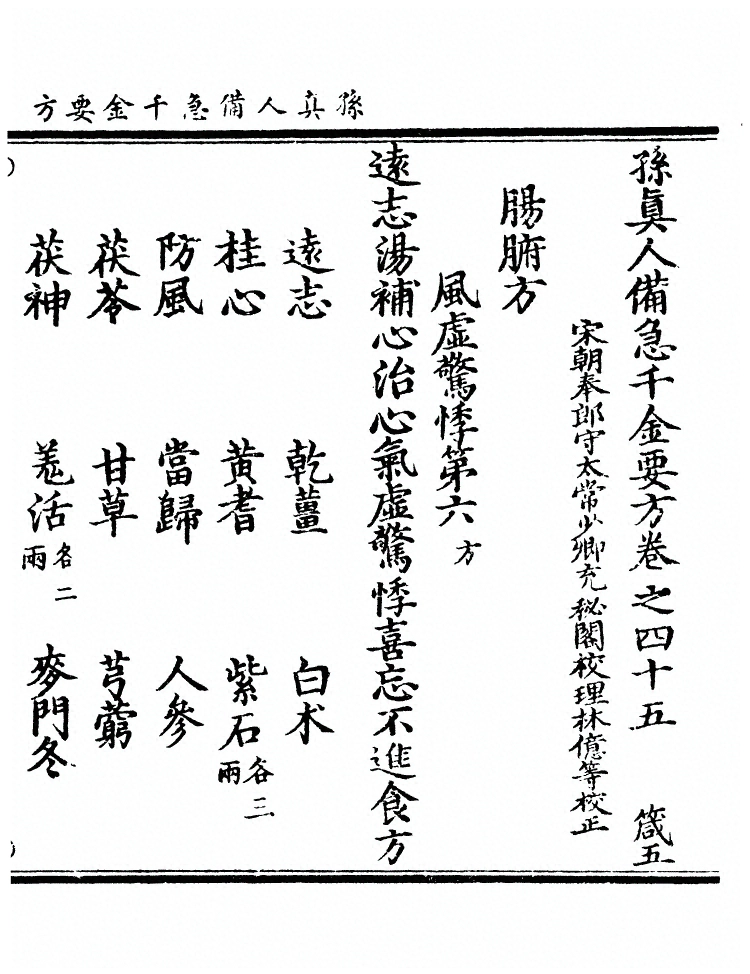 孫真人備急千金要方
孫眞人備急千金要方卷之四十五 箴五
宋朝奉郎守太常少卿充秘閣校理林億等校正
腸腑方
風虛驚悸第六 方
遠志湯補心治心氣虛驚悸喜忘不進食方
遠志 乾薑 白朮
桂心 黃耆 紫石各三兩
防風 當歸 人參
茯苓 甘草 芎藭
茯神 羗活各二兩 麥門冬